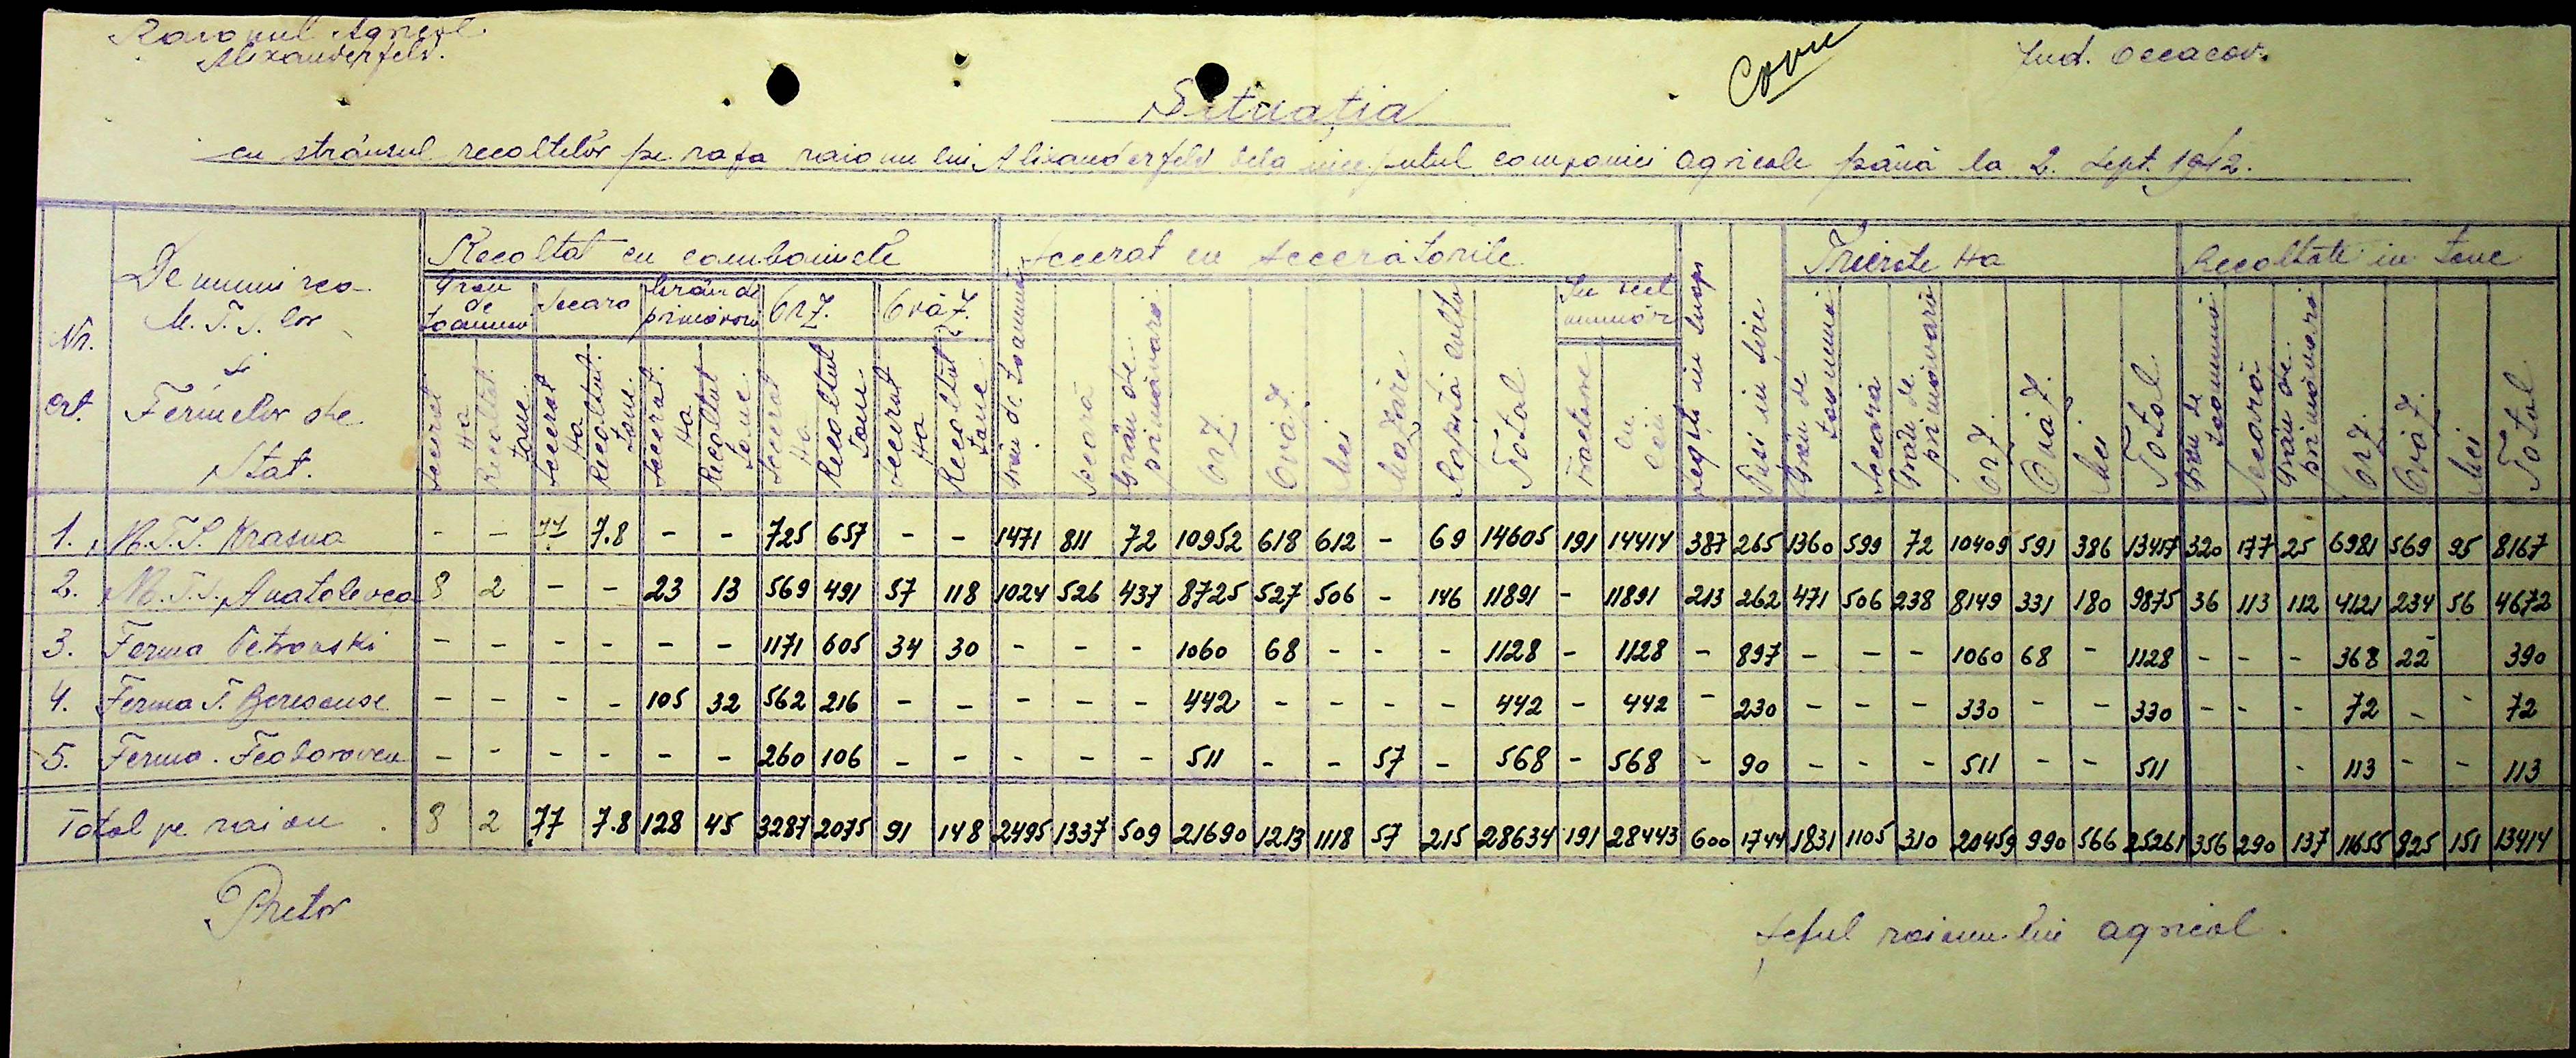 Raionul Agricol
Alexanderfeld.
Copie
Jud. Oceacov.
Situația
cu strânsul recoltelor pe raza raionului Alexanderfeld dela începutul campaniei agricole până la 2. Sept. 1942.
Nr. crt.
Denumirea M.T.S. lor și Fermelor de Stat.
Recoltat cu combainele
Grâu de toamnă | Secara | Grâu de primăvară | Orz. | Ovăz.
Secerat Ha | Recoltat tone | Secerat Ha | Recoltat tone | Secerat Ha | Recoltat tone | Secerat Ha | Recoltat tone | Secerat Ha | Recoltat tone
Secerat cu secerătorile
Grâu de toamnă | Secară | Grâu de primăvară | Orz | Ovăz. | Mei | Mazăre | Rapiță | Total
Tractoare | Cu
Puși in șire
Trierate Ha
Grâu de toamnă | Secară | Grâu de primăvară | Orz. | Ovăz. | Mei | Total
Recoltate in tone
Grâu de toamnă | Secară | Grâu de primăvară | Orz. | Ovăz. | Mei | Total
1. M.T.S. Krasna - - 77 7.8 - - 725 657 - - 1471 811 72 10952 618 612 - 69 14605 191 14414 387 265 1360 599 72 10409 591 386 13417 320 177 25 6981 569 95 8167
2. M.T.S. Anatolevca 8 2 - - 23 13 569 491 57 118 1024 526 437 8725 527 506 - 146 11891 - 11891 213 262 471 506 238 8149 331 180 9875 36 113 112 4121 234 56 4672
3. Ferma Petrovski - - - - - - 1171 605 34 30 - - - 1060 68 - - - 1128 - 1128 - 897 - - - 1060 68 - 1128 - - - 368 22 390
4. Ferma T. - - - - 105 32 562 216 - - - - - 442 - - - - 442 - 442 - 230 - - - 330 - - 330 - - - 72 - - 72
5. Ferma. Feodorovca - - - - - - 260 106 - - - - - 511 - - 57 - 568 - 568 - 90 - - - 511 - - 511 - 113 - - 113
Total pe raion . 8 2 77 7.8 128 45 3287 2075 91 148 2495 1337 509 21690 1213 1118 57 215 28634 191 28443 600 1744 1831 1105 310 20459 990 566 25261 356 290 137 11655 825 151 13414
Pretor
Șeful raionului agricol.